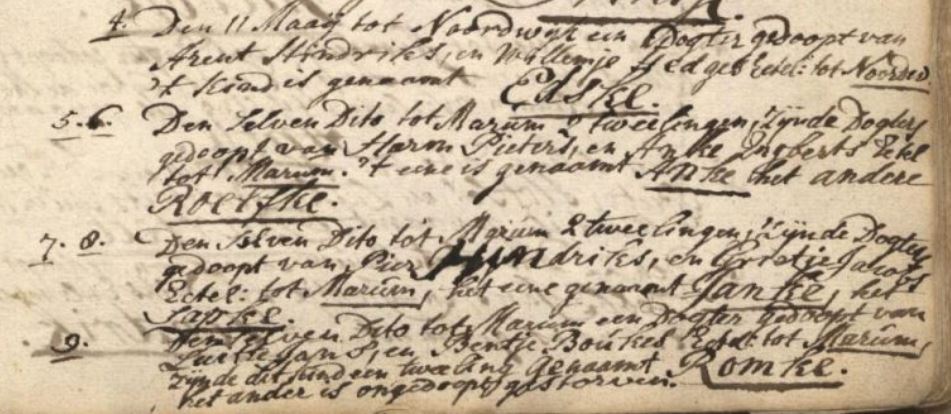 4. Den 11 Maaij tot Noordwijk een Dogter gedoopt van
Arent Hindriks, en Willemje gebr Eetel: tot Noordw.
't kind is genaamt Edske.
5. 6. Den Selven Dito tot Marum 2 tweelingen, zijnde Dogters
gedoopt van Harm Pieters, en Anke Eetel
tot Marum. 't eene is genaamt Anke het andere
Roelfke.
7. 8. Den Selven Dito tot Marum 2 tweelingen, zijnde Dogters
gedoopt van Pier Hindriks, en Grietje Jacobs
Eetel: tot Marum, het eene genaamt Janke, het
Sapke.
9. Den Selven Dito tot Marum een Dogter gedoopt van
Jans, en Bentje Boukes Eetel: tot Marum,
zijnde dit kind een tweeling Genaamt Romke.
het ander is ongedoopt gestorven.